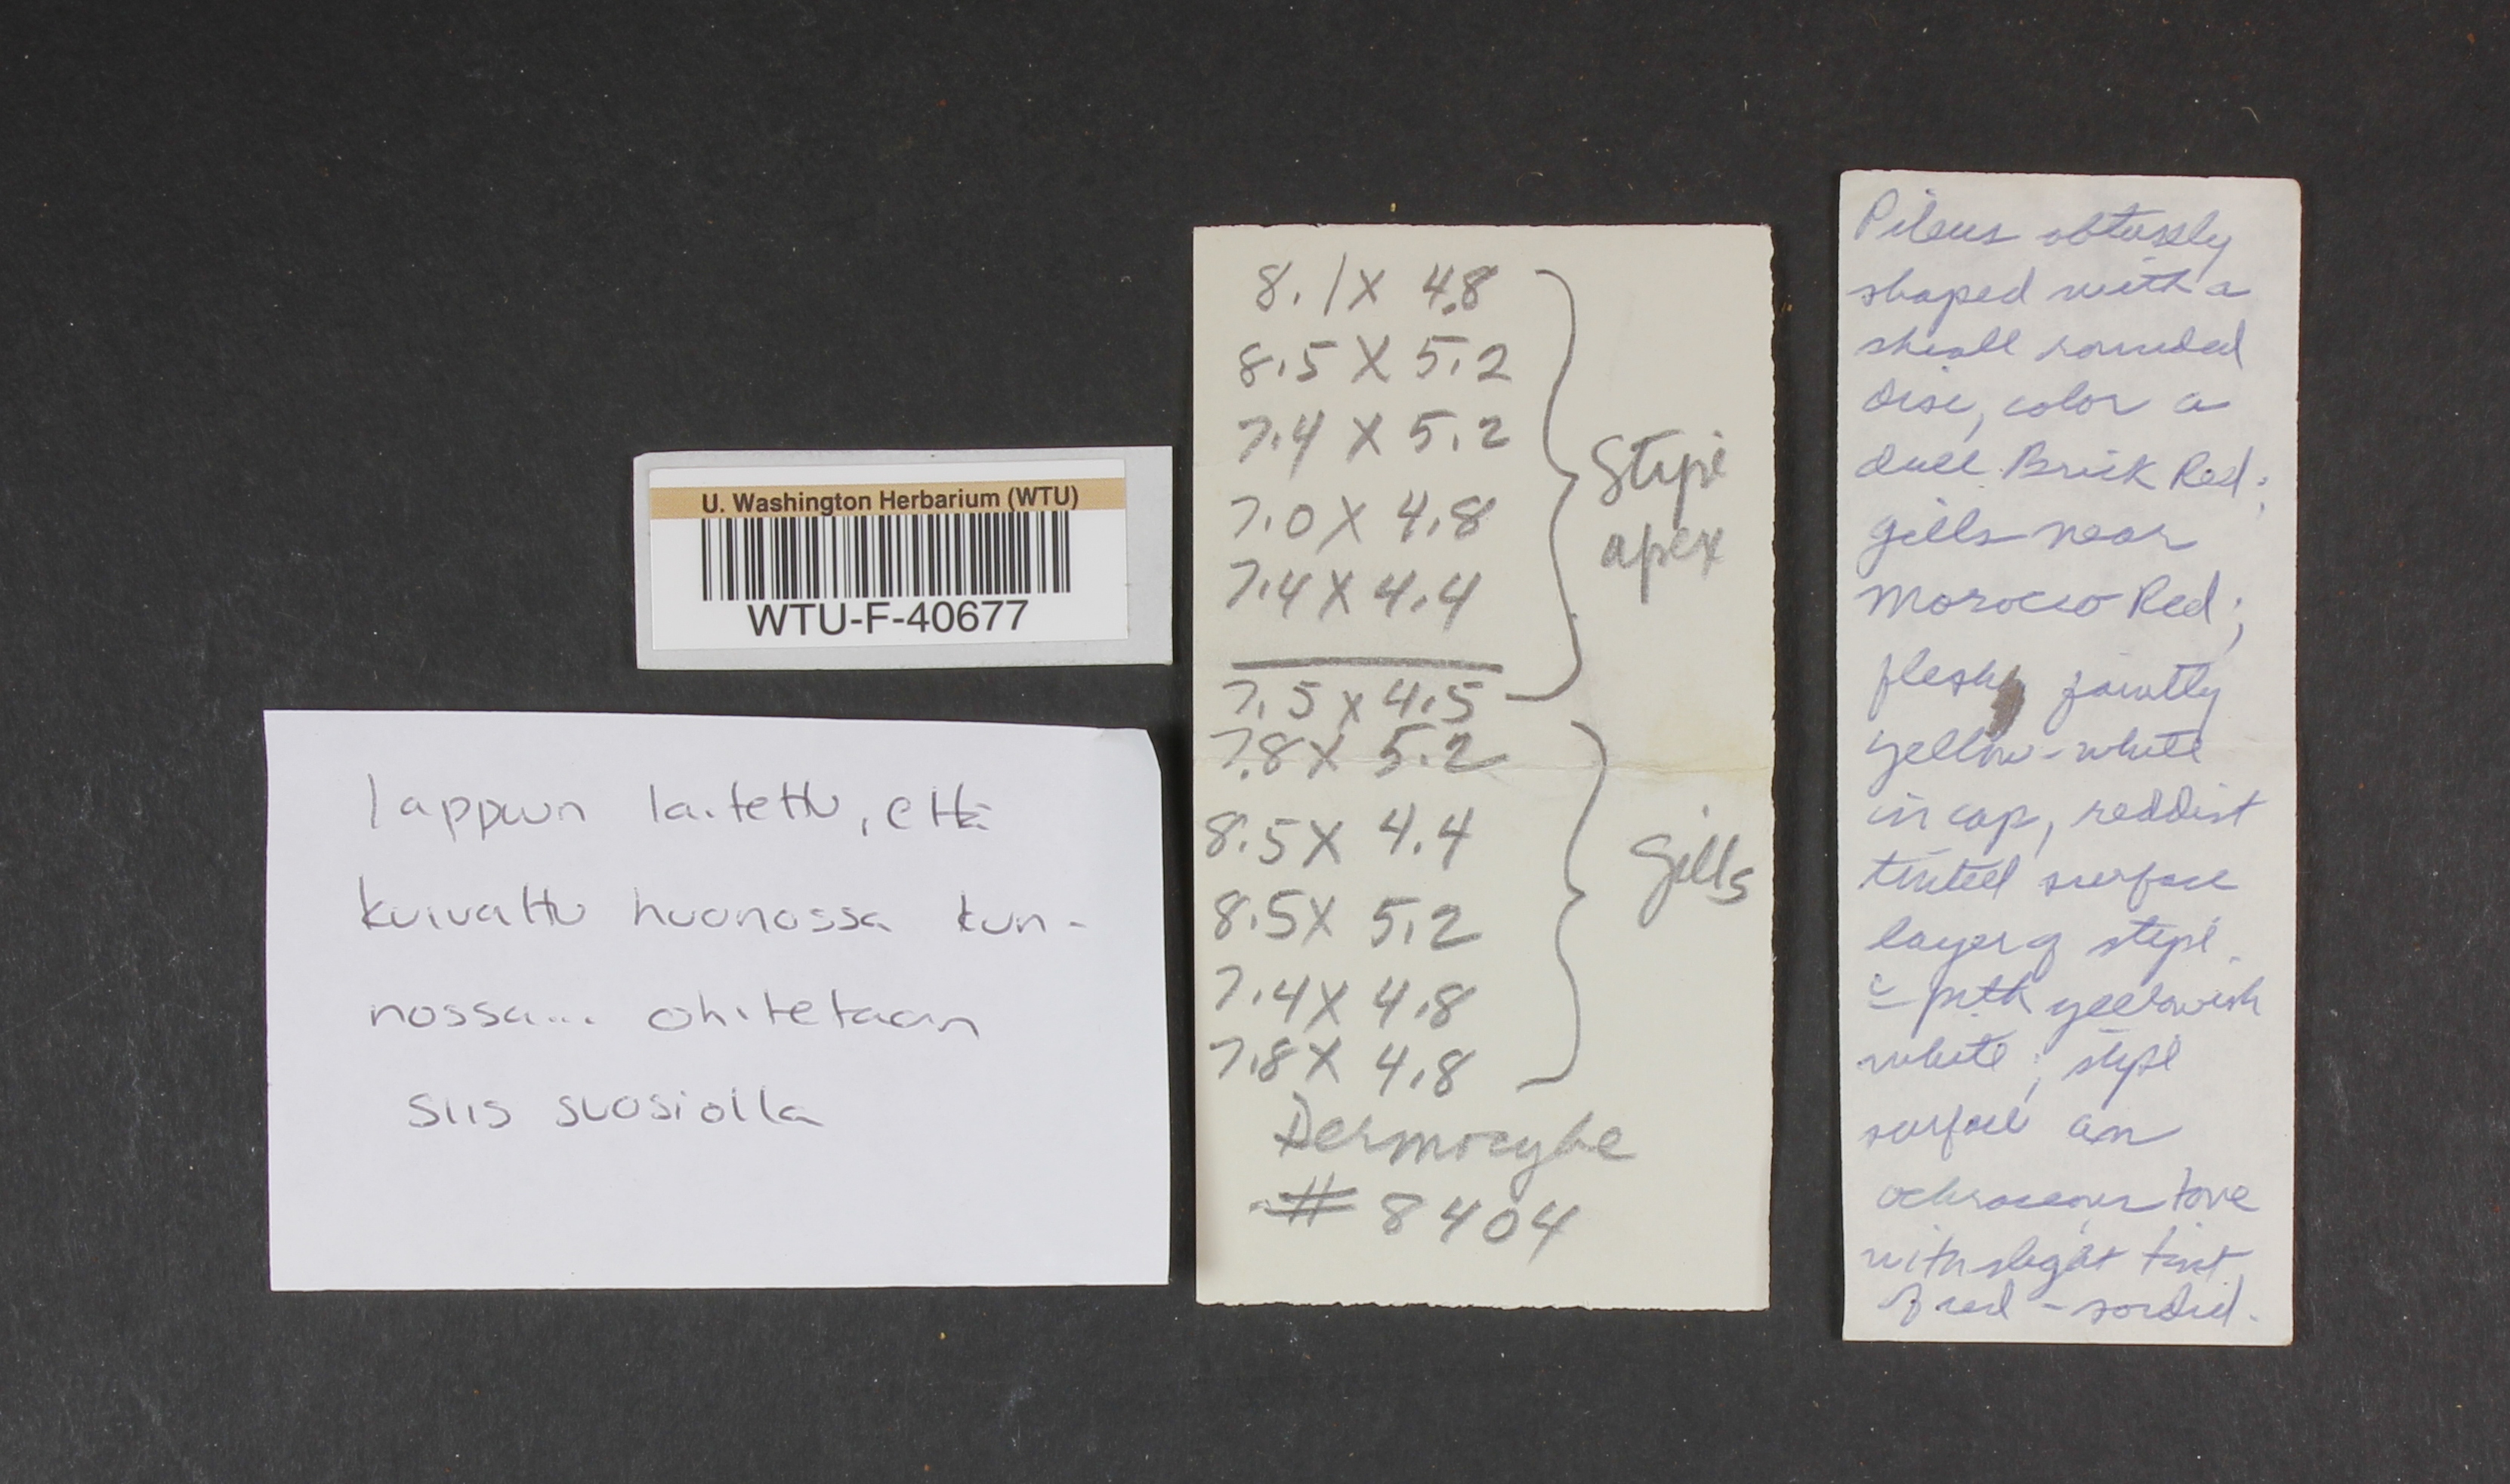 U. Washington Herbarium (WTU)
WTU-F-40677
lappuun laitettu, että
kuivattu huonossa kun-
nossa... ohitetaan
siis suosiolla
8.1 X 4.8
8.5 X 5.2
7.4 X 5.2
7.0 X 4.8
7.4 X 4.4
7.5 x 4.5
Stipe
apex
7.8 X 5.2
8.5 X 4.4
8.5 X 5.2
7.4 X 4.8
7.8 X 4.8
gills
Dermocybe
# 8404
Pileus obtusely
shaped with a
small rounded
disc, color a
dull Brick Red;
gills near
Morocco Red;
flesh faintly
yellow-white
in cap, reddish
tinted surface
layer of stipe
c̄ pith yellowish
white; stipe
surface an
ochraceous tone
with slight tint
of red - sordid.